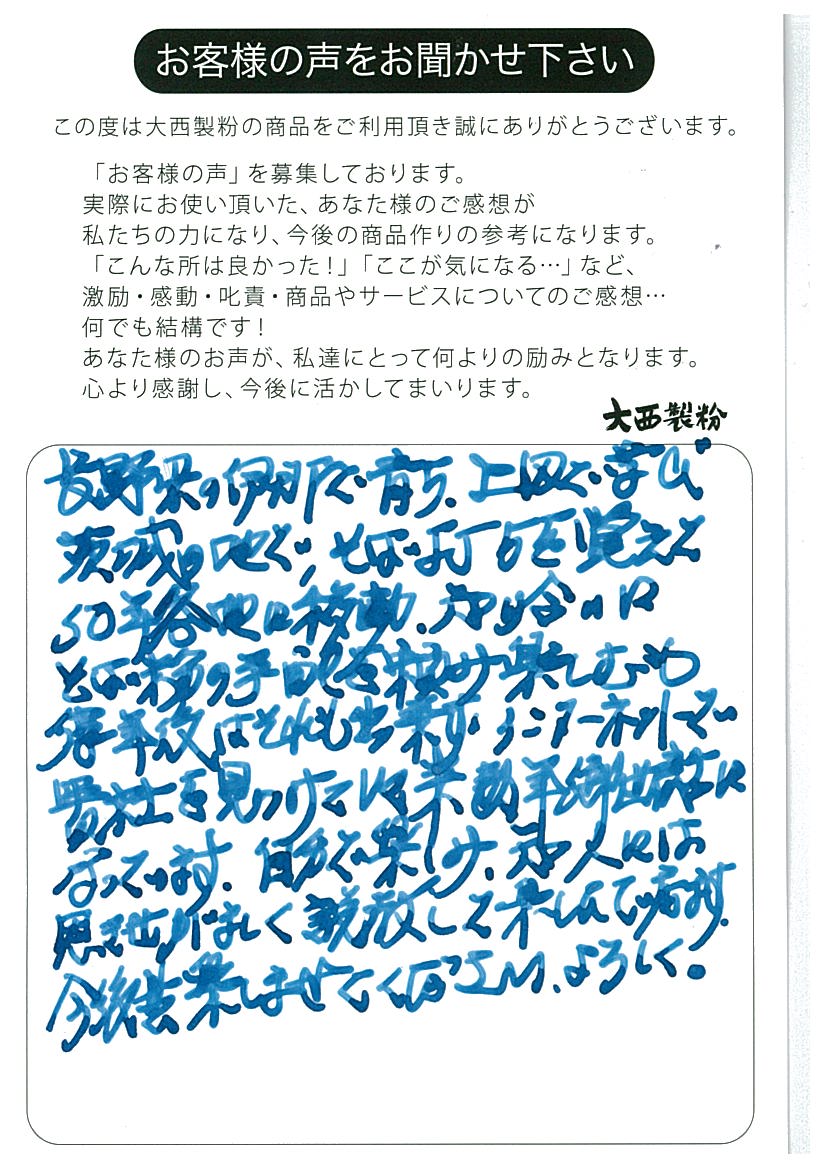 お客様の声をお聞かせ下さい
この度は大西製粉の商品をご利用頂き誠にありがとうございます。
「お客様の声」を募集しております。
実際にお使い頂いた、あなた様のご感想が
私たちの力になり、今後の商品作りの参考になります。
「こんな所は良かった！」「ここが気になる…」など、
激励・感動・叱責・商品やサービスについてのご感想…
何でも結構です！
あなた様のお声が、私達にとって何よりの励みとなります。
心より感謝し、今後に活かしてまいります。
大西製粉
長野県の伊那で育ち、上田で学び
茨城の地で、そば打ちを覚えて
50年各地に移動、知り合いに
そば や 楽しむも
定年後はそれも出来ず インターネットで
貴社を見つけて以来 数年御世話に
なっています。自分で楽しみ、知人には
して 楽しんで居ます。
今後共楽しませてください、よろしく。